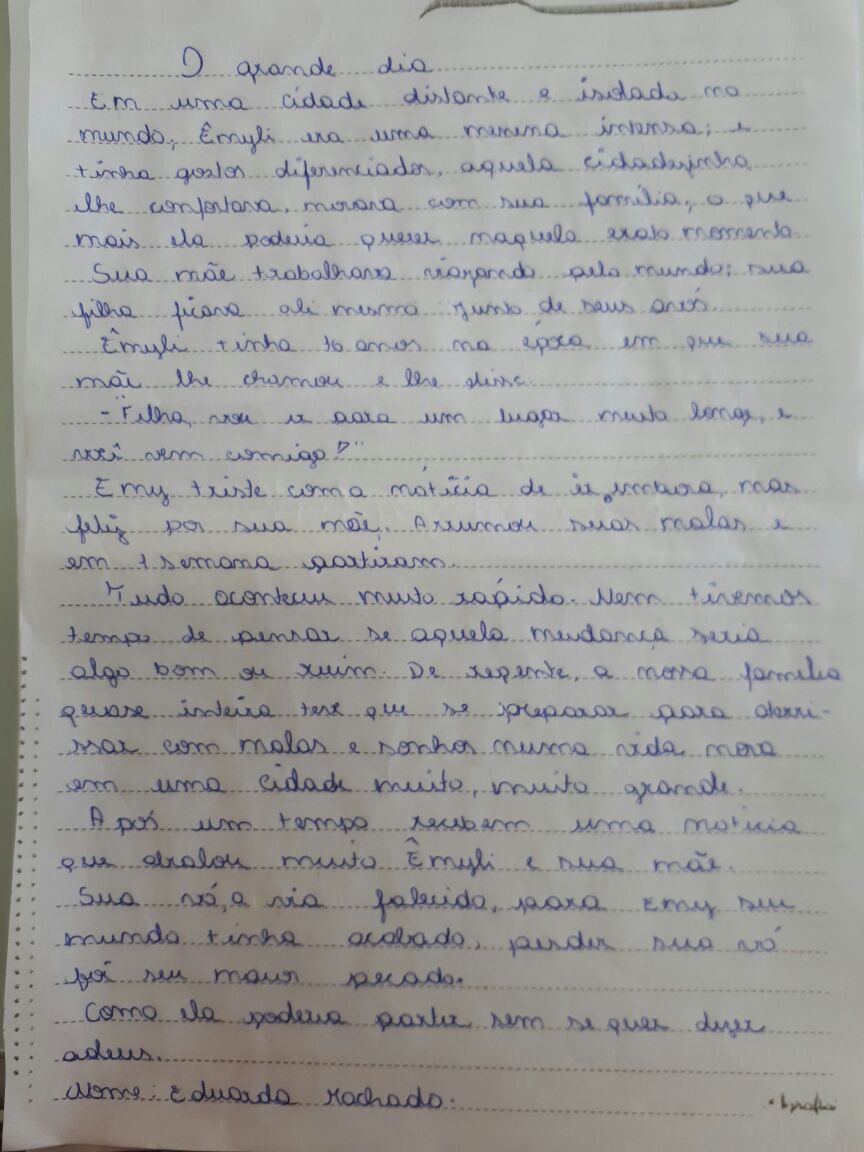 O grande dia
Em uma cidade distante e isolada no
mundo, Êmyli era uma menina intensa; e
tinha gostos diferenciados, aquela cidadezinha
lhe confortava, morava com sua família, o que
mais ela poderia querer naquele exato momento.
Sua mãe trabalhava viajando pelo mundo; sua
filha ficava ali mesmo junto de seus avós.
Êmyli tinha 10 anos na época em que sua
mãe lhe chamou e lhe disse:
-"Filha, vou ir para um lugar muito longe, e
você vem comigo?"
Emy triste com a notícia de ir embora, mas
feliz por sua mãe. Arrumou suas malas e
em 1 semana partiram.
Tudo aconteceu muito rápido. Nem tivemos
tempo de pensar se aquela mudança seria
algo bom ou ruim. De repente, a nossa família
quase inteira teve que se preparar para aterri-
ssar com malas e sonhos numa vida nova
em uma cidade muito, muito grande.
Após um tempo recebem uma notícia
que abalou muito Êmyli e sua mãe.
Sua vó, a via falecido, para Emy seu
mundo tinha acabado, perder sua vó
foi seu maior pecado.
Como ela poderia partir sem se quer dizer
adeus.
Nome: Eduarda Machado.